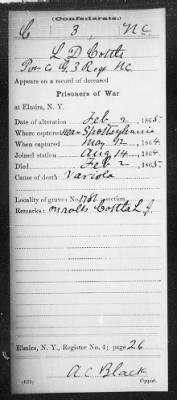 (Confederate.)
C 3 N C
L D Cottle
Pri Co G, 3 Reg. N.C.
Appears on a record of deceased
Prisoners of War
at Elmira, N. Y.
Date of alteration Feb 2, 1865.
Where captured near Spottsylvania
When captured May 12, 1864.
Joined station Aug 14, 1864.
Died Feb 2, 1865.
Cause of death Variola
Locality of grave: No. section
Remarks: on rolls Cottle L. J.
Elmira, N. Y., Register No. 4; page 26
A C Black
Copyist.